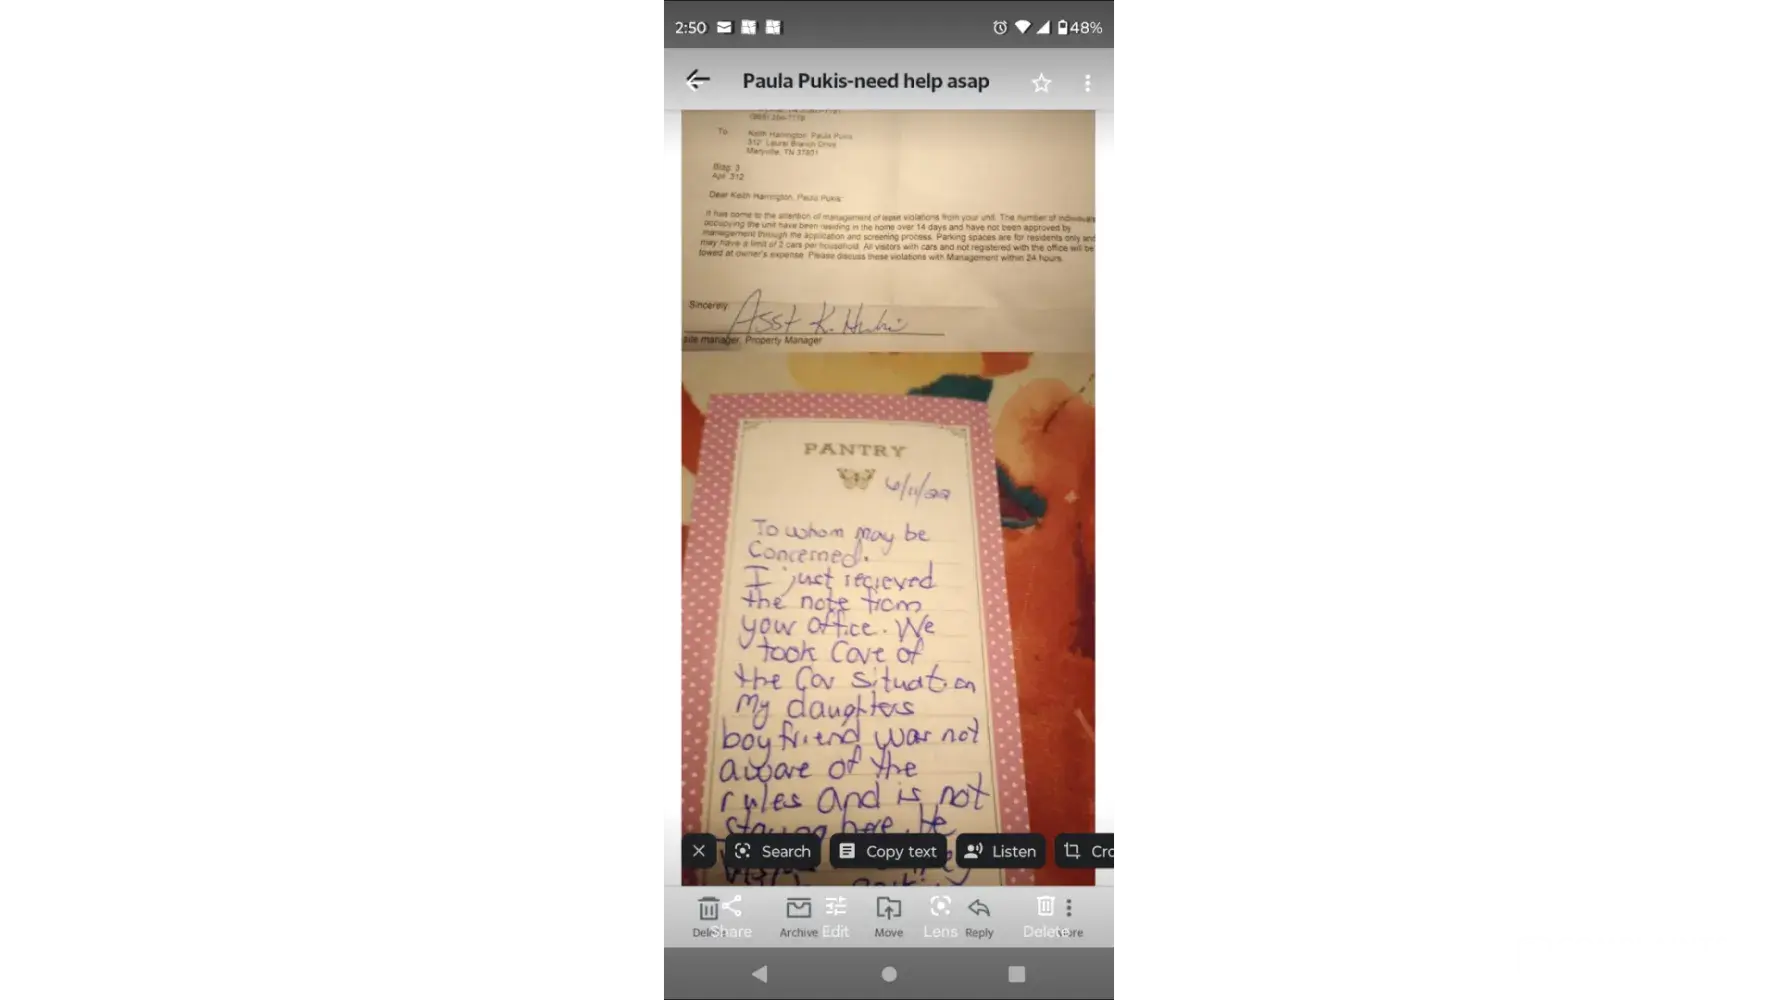 2:50
48%
Paula Pukis-need help asap
To
Keith Harrington, Paula Pukis
312 Laurel Branch Drive
Maryville, TN 37801
Bldg. 3
Apt. 312
Dear Keith Harrington, Paula Pukis:
It has come to the attention of management of lease violations from your unit. The number of individuals
occupying the unit have been residing in the home over 14 days and have not been approved by
management through the application and screening process. Parking spaces are for residents only and
may have a limit of 2 cars per household. All visitors with cars and not registered with the office will be
towed at owner's expense. Please discuss these violations with Management within 24 hours.
Sincerely,
Asst K.
site manager, Property Manager
PANTRY
6/11/22
To whom may be
Concerned.
I just recieved
the note from
your office. We
took Care of
the Car situation
My daughters
boyfriend was not
aware of the
rules and is not
staying here. He
Search
Copy text
Listen
Cro
Delete
Share
Archive
Edit
Move
Lens
Reply
Delete
More